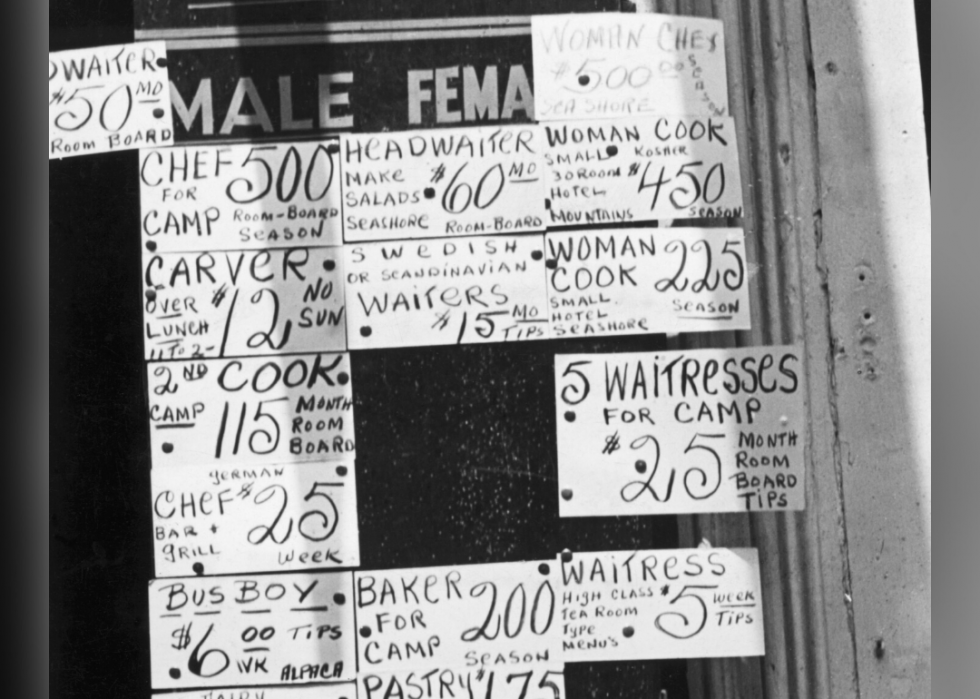 WAITER
$50 MO
ROOM BOARD
MALE FEMA
WOMAN CHEF
$500 00 SEASON
SEASHORE
CHEF 500
FOR
CAMP ROOM-BOARD
SEASON
HEADWAITER
MAKE $60 MO
SALADS
SEASHORE ROOM-BOARD
WOMAN COOK
SMALL KOSHER
30 ROOM $450
HOTEL
MOUNTAINS SEASON
CARVER
OVER $12 NO
LUNCH SUN
11 TO 2-
SWEDISH
OR SCANDINAVIAN
WAITERS
$15 MO
TIPS
WOMAN 225
COOK
SMALL SEASON
HOTEL
SEASHORE
2ND COOK
CAMP 115 MONTH
ROOM
BOARD
5 WAITRESSES
FOR CAMP
$25 MONTH
ROOM
BOARD
TIPS
GERMAN
CHEF $25
BAR +
GRILL WEEK
BUS BOY
$6 00 TIPS
WK ALPACA
BAKER 200
FOR
CAMP SEASON
WAITRESS
HIGH CLASS $5 WEEK
TEA ROOM TIPS
TYPE
MENU'S
PASTRY $175